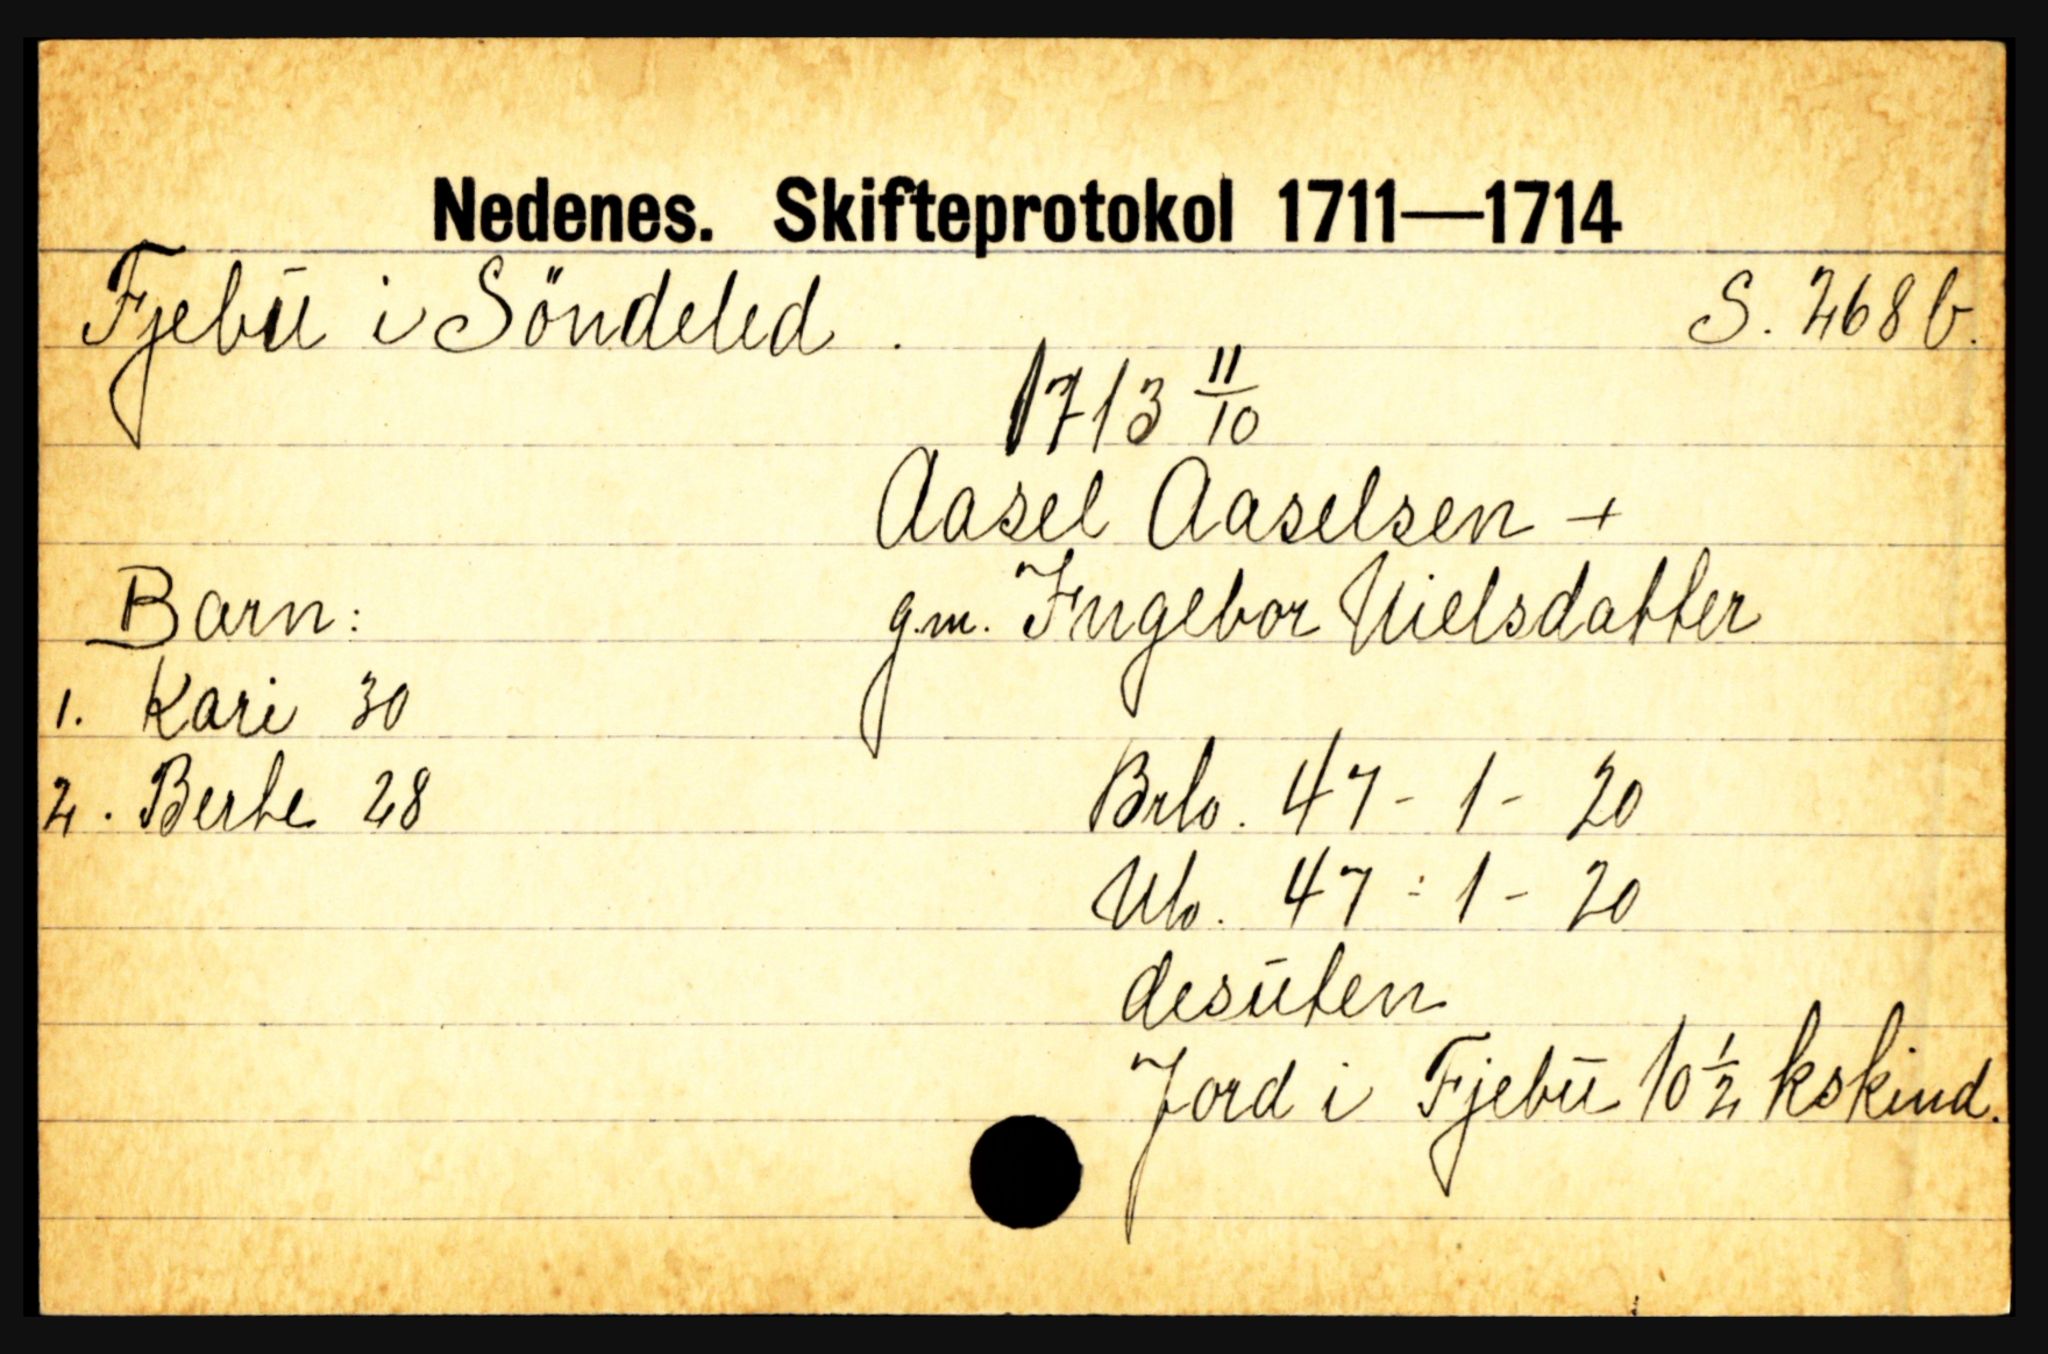 Nedenes. Skifteprotokol 1711—1714
Fjebū i Söndeled. S. 268 b.
1713 11/10
Aasel Aaselsen +
Barn: g.m. Ingebor Nielsdatter
1. Kari 30
2. Berte 28 Brlo. 47 - 1 - 20
Nlo. 47 - 1 - 20
desūten
Jord i Fjebū 10 1/2 kskind.